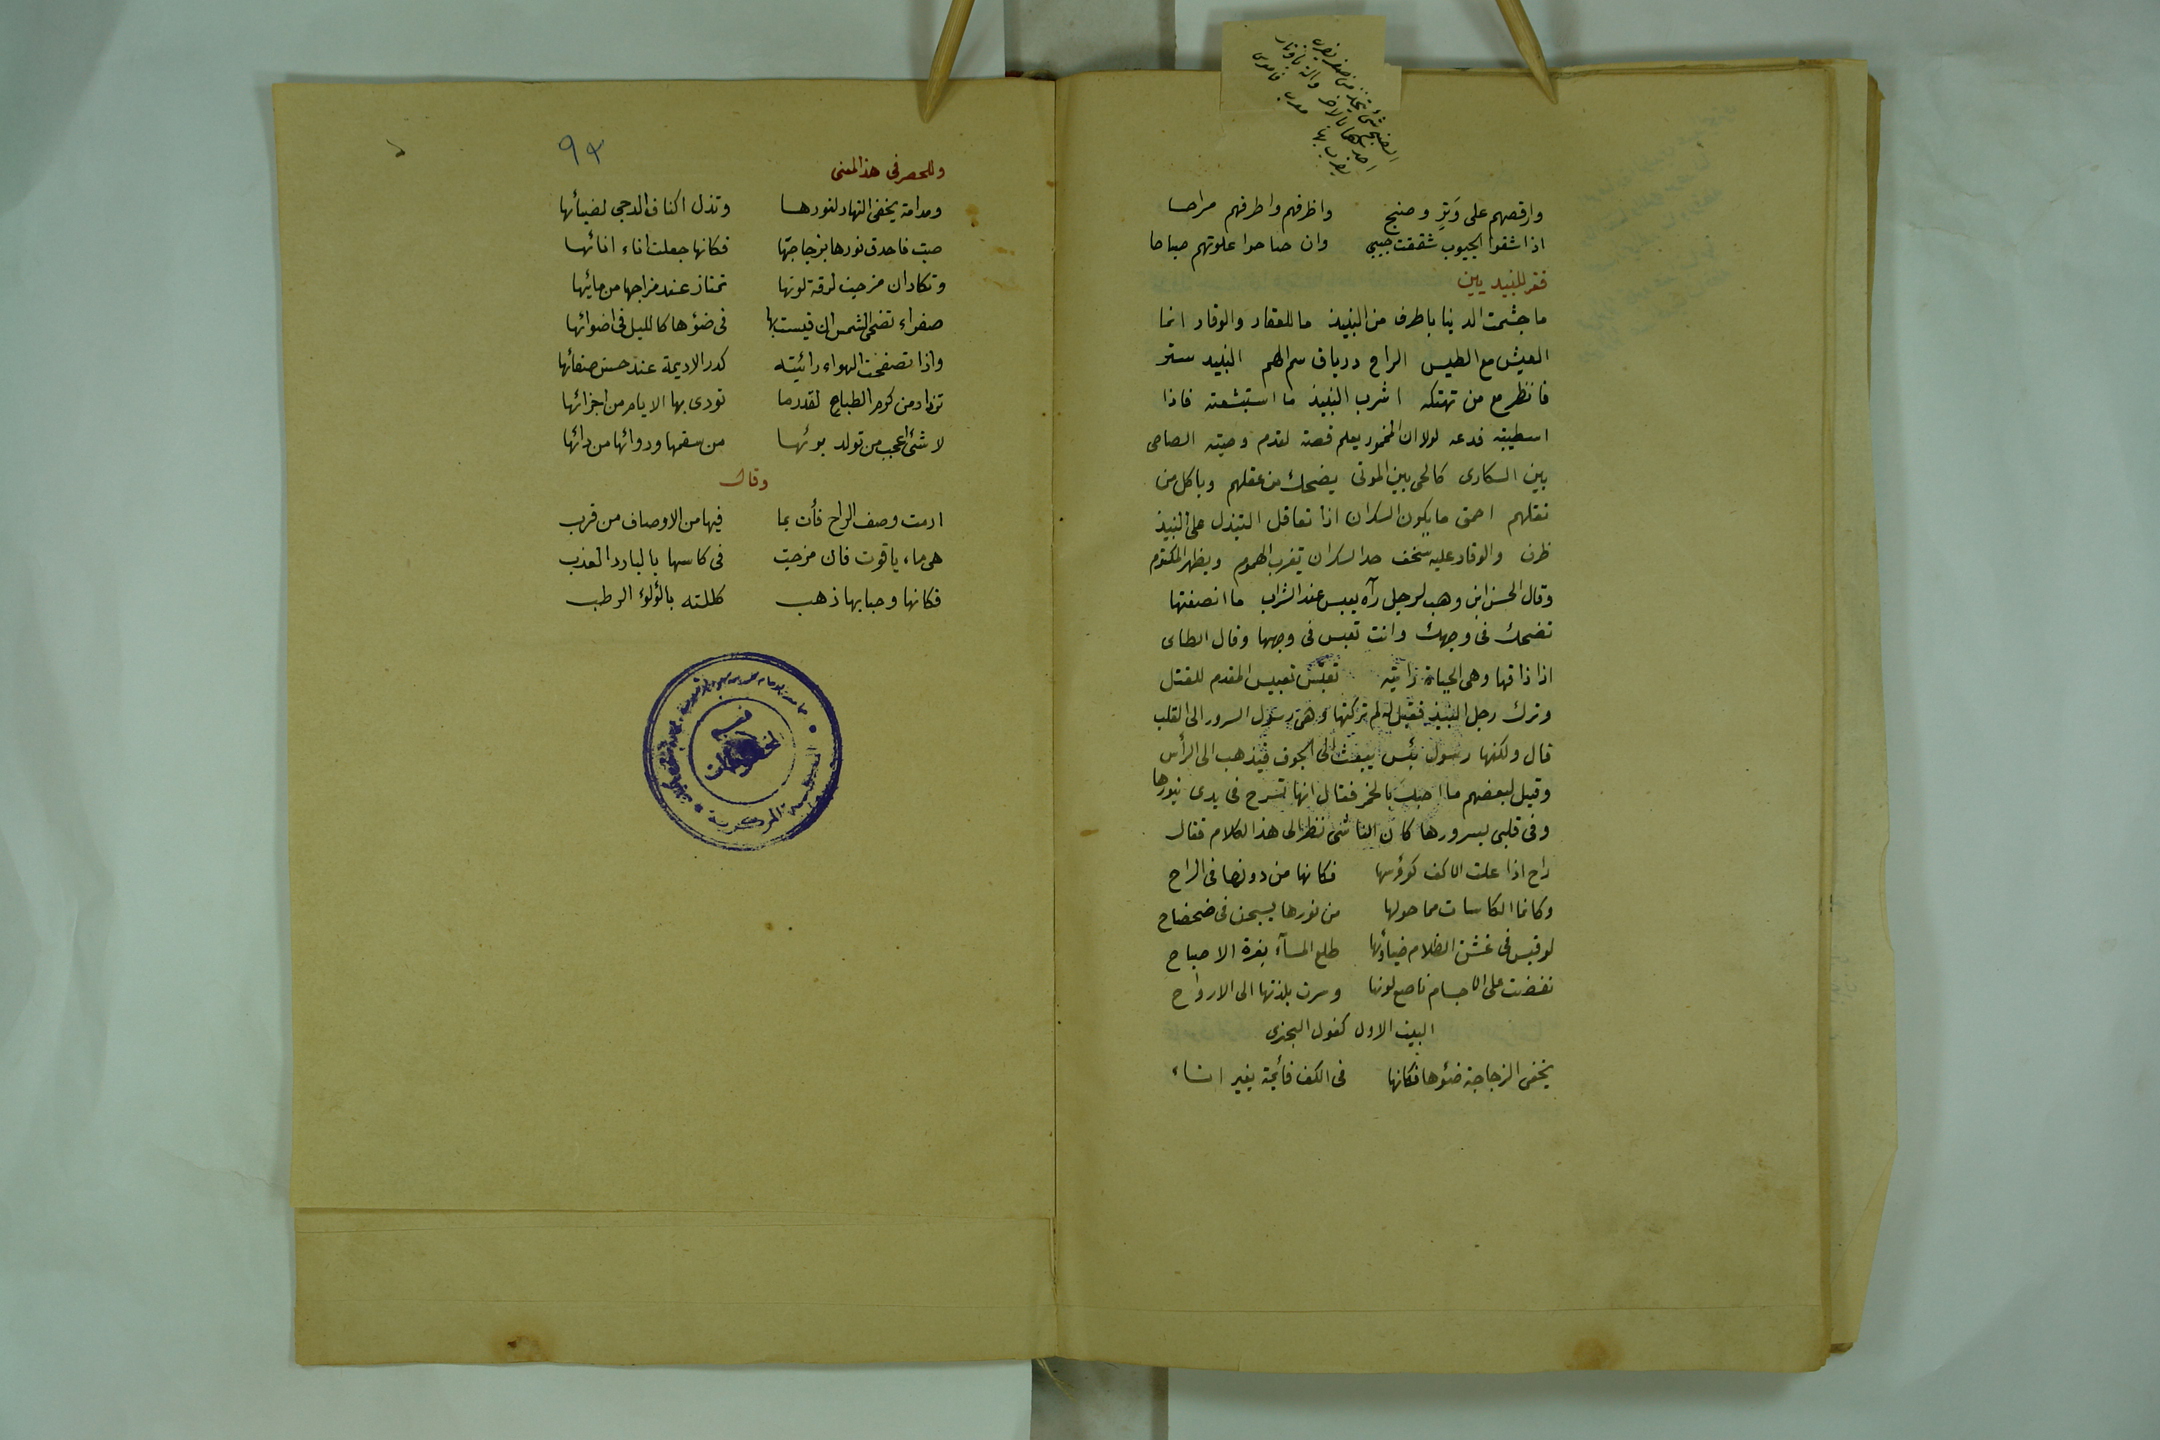 الصنج شئ يتخذ من صفر يضرب
احدهما بالاخر والة باوتار
يضرب بها معرب قاموس
وارقصهم على وَتِرٍ وصنج واظرفهم واطرفهم مراحا
اذا شقوا الجيوب شققت جيبي وان صاحوا علوتهم صياحا
فقر للنبيذيين
ما جشمت الدنيا باظرف من النبيذ ما للعقار والوقار انما
العيش مع الطيش الراح درياق سم الهم النبيد ستر
فانظر مع من تهتكه اشرب النبيذ ما استبشعته فاذا
استطيبته فدعه لولا ان المخمور يعلم قصته لقدم وصيته الصاحى
بين السكارى كالحى بين الموتى يضحك من عقلهم وياكل من
نقلهم احمق ما يكون السكران اذا تعاقل التبذل على النبيذ
ظرف والوقار عليه سخف حد السكران تغرب الهموم ويظهر المكتوم
وقال الحسن ابن وهب لرجل رآه يعبس عند الشراب ما انصفتها
تضحك فى وجهك وانت تعبس فى وجهها وقال الطاى
اذا ذاقها وهى الحياة رايته تعبّس تعبيس المقدم للقتل
وترك رجل النبيذ فقيل له لم تركتها وهى رسول السرور الى القلب
قال ولكنها رسول بئس يبعث الى الجوف فيذهب الى الرأس
وقيل لبعضهم ما احبك بالخمر فقال انها تسرح فى يدى بنورها
وفى قلبى بسرورها كان الناشى نظر الى هذا الكلام فقال
راح اذا علت الاكف كؤسها فكانها من دونها فى الراح
وكانما الكاسات مما حولها من نورها يسبحن فى ضحضاح
لو قيس فى غسق الظلام ضياؤها طلع المسآء بغرة الاصباح
نفضت على الاجسام ناصع لونها وسرت بلذتها الى الارواح
البيت الاول كقول البحترى
يخفى الزجاجة ضوءها فكانها فى الكف قائمة بغير اناء
٩٣
وللحصر فى هذ المعنى
ومدامة يخفى النهار لنورها وتذل اكناف الدجى لضيائها
صبت فاحدق نورها بزجاجتها فكانها جعلت اناء انائها
وتكاد ان مزجت لرقة لونها تمتاز عند مزاجها من مائها
صفراء تضحى الشمس ان قيست بها فى ضؤها كالليل فى اضوائها
واذا تصفحت الهواء رائيته كدر الاديمة عند حسن صفائها
تزداد من كرم الطباع لقدر ما تودى بها الايام من اجزائها
لا شئ اعجب من تولد بوئها من سقمها ودوائها من دائها
وقال
ادمت وصف الراح فأت بما فيها من الاوصاف من قرب
هى ماء ياقوت فان مزجت فى كاسها بالبارد العذب
فكانها وحبابها ذهب كللته بالؤلؤ الرطب